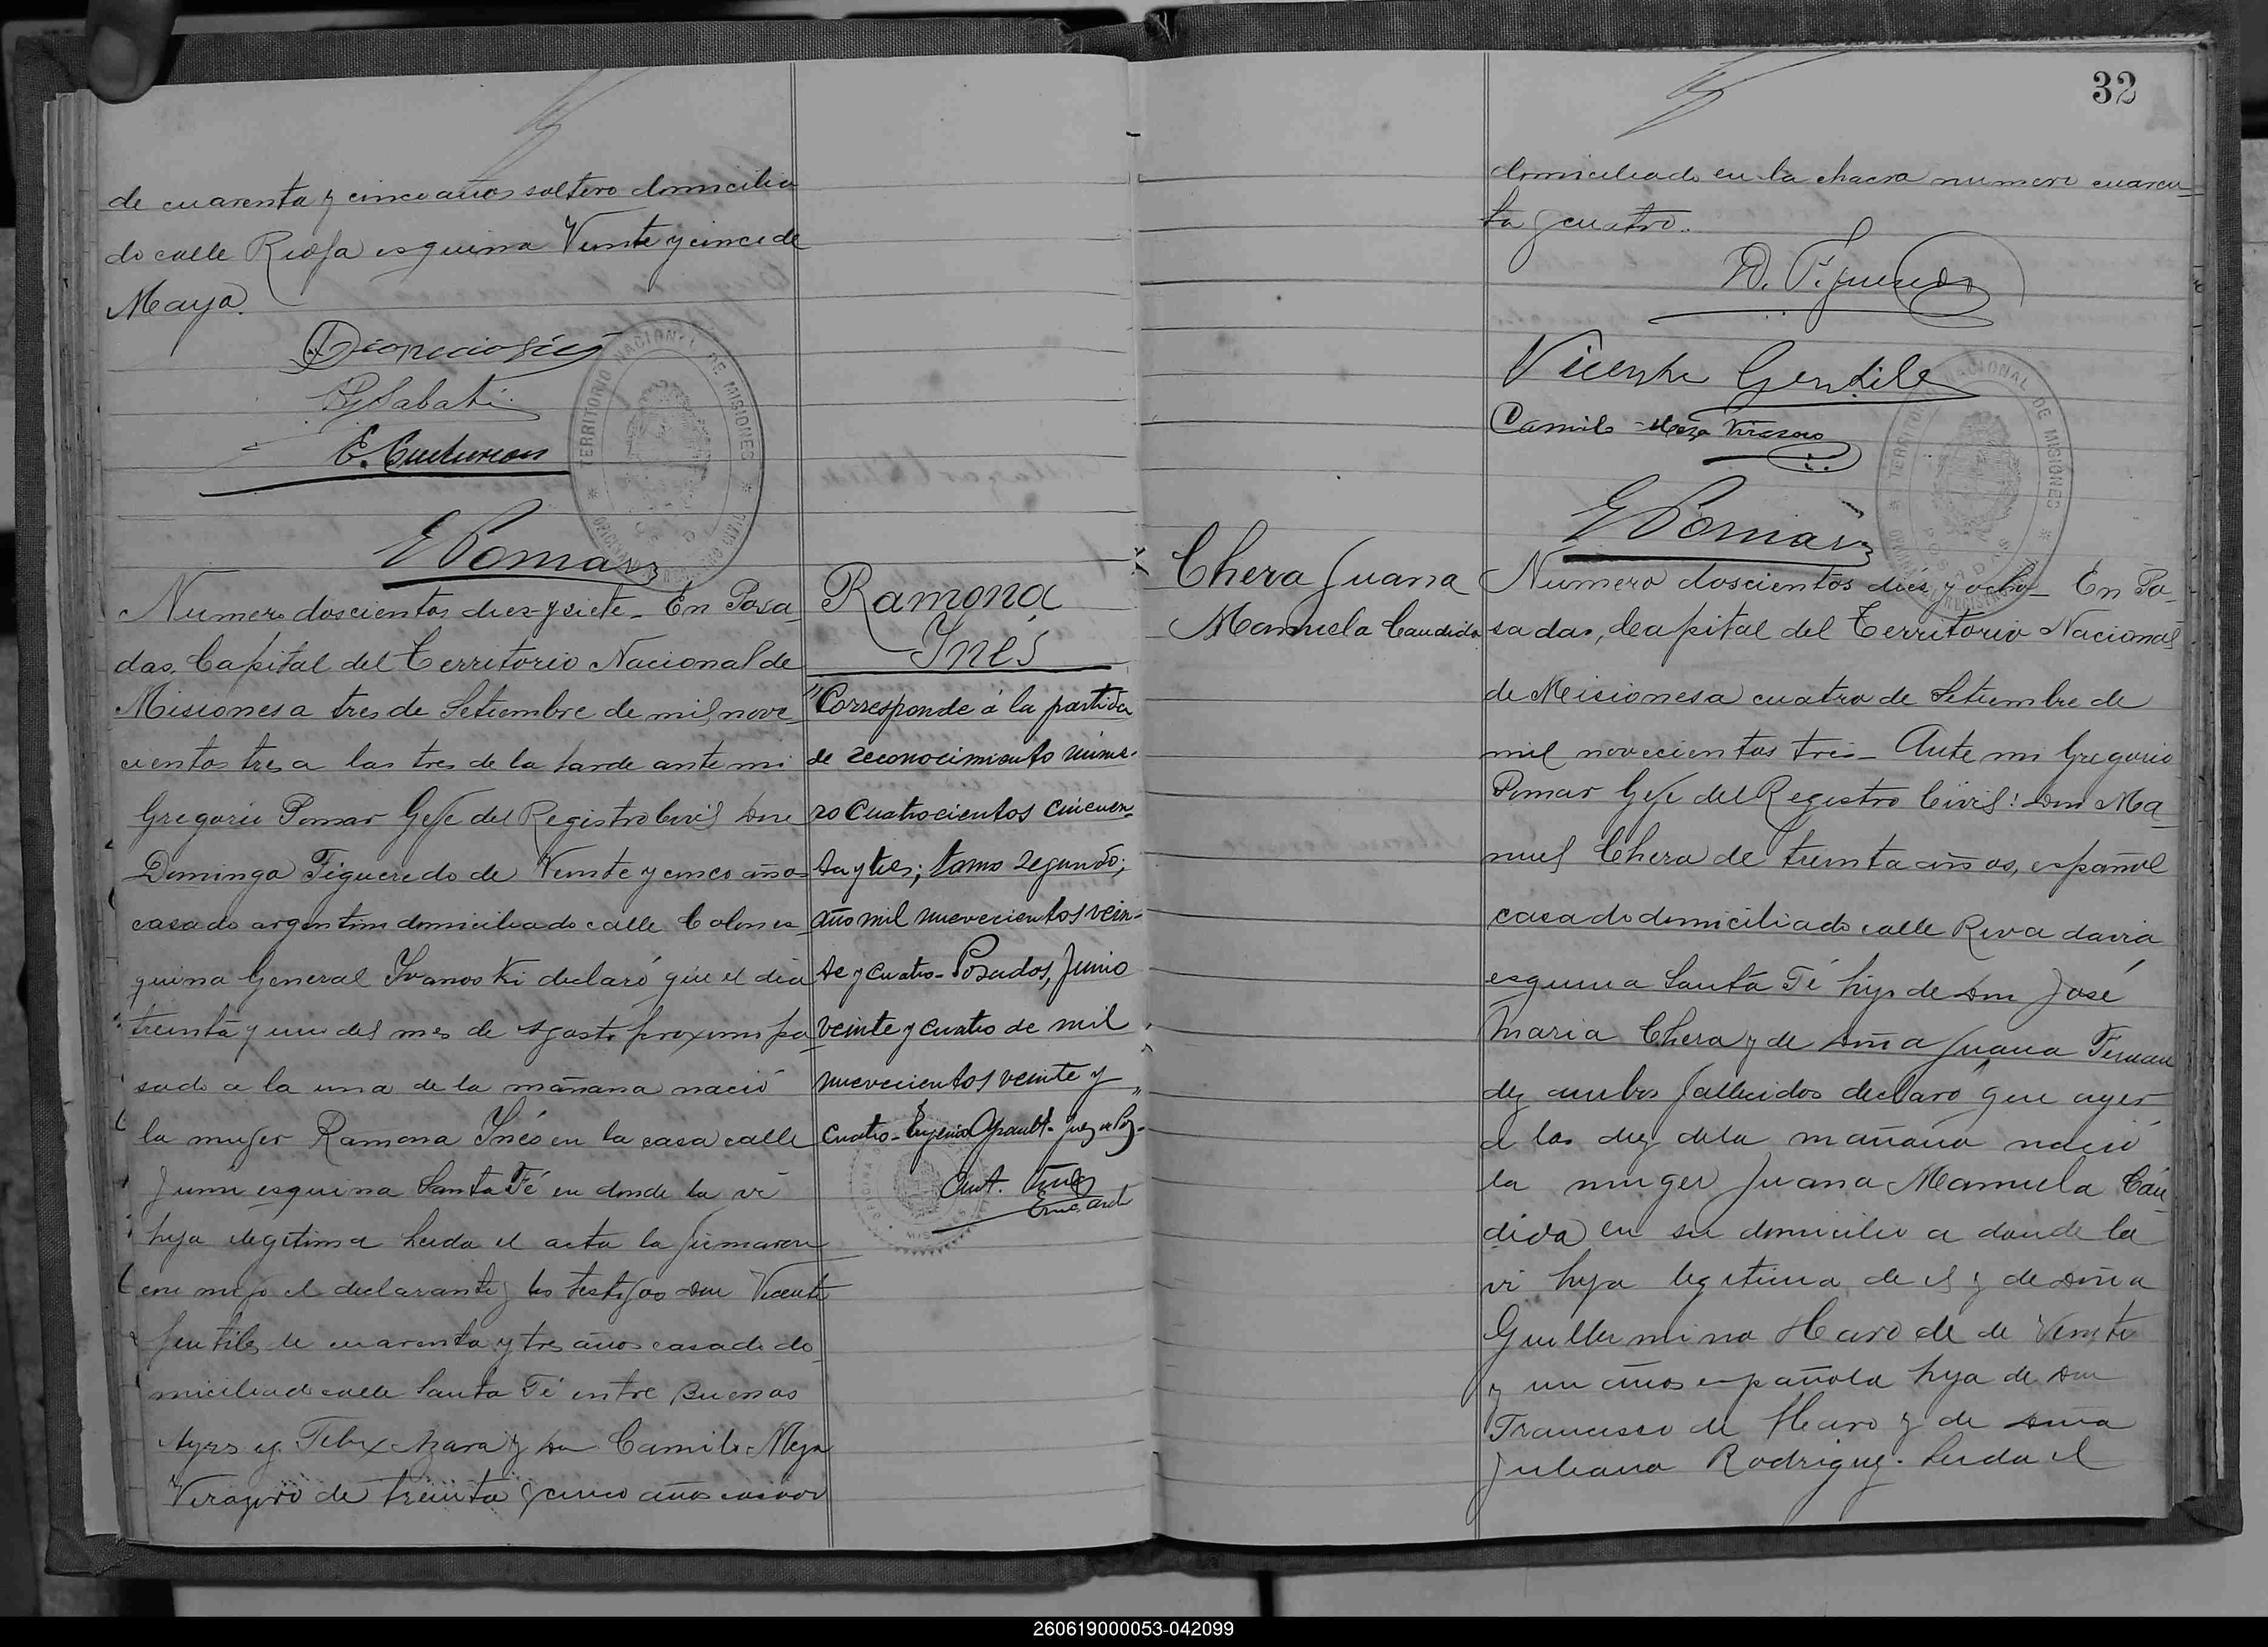 de cuarenta y cinco años soltero domicilia
do calle Rioja esquina Veinte y cinco de
Mayo.
E. Pomar
Numero doscientos diez y siete - En Posa-
das, Capital del Territorio Nacional de
Misiones a tres de Setiembre de mil nove-
cientos tres a las tres de la tarde ante mi
Gregorio Pomar Gefe del Registro Civil Don
Domingo Figueredo de Veinte y cinco años
casado argentino domiciliado calle Colon es-
quina General Ivanoski declaró que el dia
treinta y uno del mes de Agosto proximo pa-
sado a la una de la mañana nació
la muger Ramona Inés en la casa calle
Junin esquina Santa Fé en donde la vi
hija ilegitima leida el acta la firmaron
con migo el declarante y los testigos Don Vicente
Gentile de cuarenta y tres años casado do-
miciliado calle Santa Fé entre Buenos
Ayres y Felix Azara y Don Camilo Meza
Virasoro de treinta y cinco años casado
Ramona
Inés
"Corresponde á la partida
de reconocimiento núme-
ro cuatrocientos cincuen-
ta y tres; tomo segundo;
año mil nuevecientos vein-
te y cuatro - Posadas, Junio
veinte y cuatro de mil
nuevecientos veinte y
cuatro -
TERRITORIO NACIONAL DE MISIONES
32
domiciliado en la chacra numero cuaren-
ta y cuatro.
D. Figueredo
Vicente Gentile
Camilo Meza Virasoro
E. Pomar
TERRITORIO NACIONAL DE MISIONES
POSADAS
Chera Juana
Manuela Candida
Numero doscientos diez y ocho - En Po-
sadas, Capital del Territorio Nacional
de Misiones a cuatro de Setiembre de
mil novecientos tres - Ante mi Gregorio
Pomar Gefe del Registro Civil: Don Ma-
nuel Chera de treinta años, español
casado domiciliado calle Rivadavia
esquina Santa Fé hijo de Don José
Maria Chera y de Doña Juana Fernan
dez ambos fallecidos declaró que ayer
a las diez de la mañana nació
la muger Juana Manuela Cán-
dida en su domicilio a donde la
vi hija legitima de el y de Doña
Guillermina Haro de de Veinte
y un años española hija de Don
Francisco de Haro y de Doña
Juliana Rodriguez. Leida el
260619000053-042099